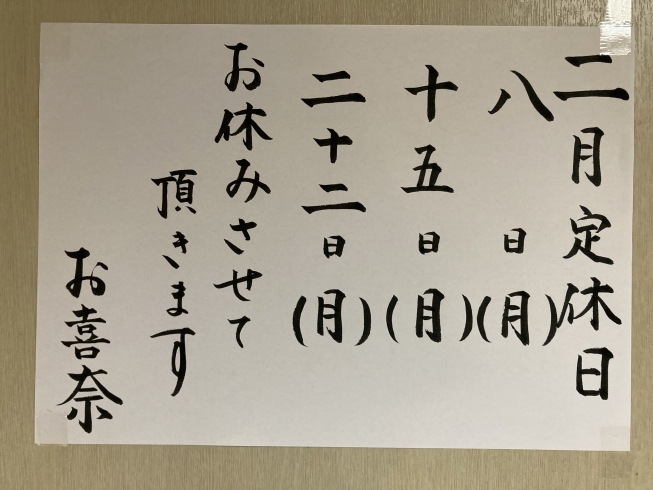 二月定休日
八日(月)
十五日(月)
二十二日(月)
お休みさせて
頂きます
お喜奈